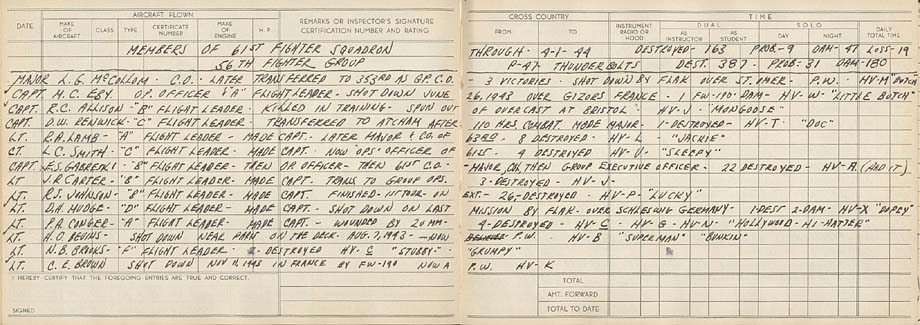 AIRCRAFT FLOWN
DATE MAKE OF AIRCRAFT CLASS TYPE CERTIFICATE NUMBER MAKE OF ENGINE H.P. REMARKS OR INSPECTOR'S SIGNATURE CERTIFICATION NUMBER AND RATING
MEMBERS OF 61ST FIGHTER SQUADRON
56TH FIGHTER GROUP
MAJOR L.G. McCOLLOM - C.O. - LATER TRANSFERRED TO 353RD AS GP. C.O.
CAPT. M.C. EBY. OP. OFFICER & "A" FLIGHT LEADER - SHOT DOWN JUNE
CAPT. R.C. ALLISON "B" FLIGHT LEADER - KILLED IN TRAINING - SPUN OUT
CAPT. D.W. RENWICK - "C" FLIGHT LEADER TRANSFERRED TO ATCHAM AFTER
LT. R.A. LAMB - "A" FLIGHT LEADER - MADE CAPT. LATER MAJOR & CO. OF
LT. L.C. SMITH - "C" FLIGHT LEADER - MADE CAPT. NOW OPS' OFFICER OF
CAPT. F.S. GABRESKI - "B" FLIGHT LEADER - THEN OP. OFFICER - THEN 61ST C.O. -
LT. J.R. CARTER - "B" FLIGHT LEADER - MADE CAPT. TRANS. TO GROUP OPS.
LT. R.S. JOHNSON - "B" FLIGHT LEADER - MADE CAPT FINISHED 1ST TOUR - ON
LT. FLIGHT LEADER - MADE CAPT. - SHOT DOWN ON LAST
LT. P.A. CONGER - "A" FLIGHT LEADER - MADE CAPT - WOUNDED BY 20 MM -
LT. SHOT DOWN NEAR PARIS ON THE DECK. AUG. 7, 1943 - NOW
LT. N.B. BROOKS - "F" FLIGHT LEADER - 2 - DESTROYED HV - C "STUBBY" -
LT. C.E. BROWN SHOT DOWN NOV 11, 1943 IN FRANCE BY FW-190 NOW A
I HEREBY CERTIFY THAT THE FOREGOING ENTRIES ARE TRUE AND CORRECT.
SIGNED
CROSS COUNTRY TIME
FROM TO INSTRUMENT RADIO OR HOOD DUAL AS INSTRUCTOR AS STUDENT SOLO DAY NIGHT DAILY TOTAL TIME
THROUGH - 4-1-44 DESTROYED - 163 PROB. - 9 DAM - 47 LOSS - 19
P-47 THUNDERBOLTS DEST. 387 - PROB. - 31 DAM - 180
- 3 VICTORIES - SHOT DOWN BY FLAK OVER ST. OMER - P.W. HV-M "BUTCH"
26, 1943 OVER GIZORS FRANCE - 1 FW-190 - DAM - HV-W - "LITTLE BUTCH"
OF OVERCAST AT BRISTOL - HV-J - "MONGOOSE"
110 HRS. COMBAT. MADE MAJOR - 1 - DESTROYED - HV-T "DOC"
63RD - 8 DESTROYED - HV-L - "JACKIE"
61ST - 4 DESTROYED - HV-V - "SLEEPY"
MAJOR, COL, THEN GROUP EXECUTIVE OFFICER - 22 DESTROYED - HV-A
3 - DESTROYED - HV-J -
EXT. - 26, DESTROYED - HV-P - "LUCKY"
MISSION BY FLAK - OVER SCHLESWIG GERMANY - 1 - DEST 2 - DAM - HV-X "DOPEY"
4 - DESTROYED - HV-C - HV-G - HV-N "HOLLYWOOD HI-HATTER"
P.W. HV-B "SUPERMAN"
"GRUMPY"
P.W. HV-K
TOTAL
AMT. FORWARD
TOTAL TO DATE